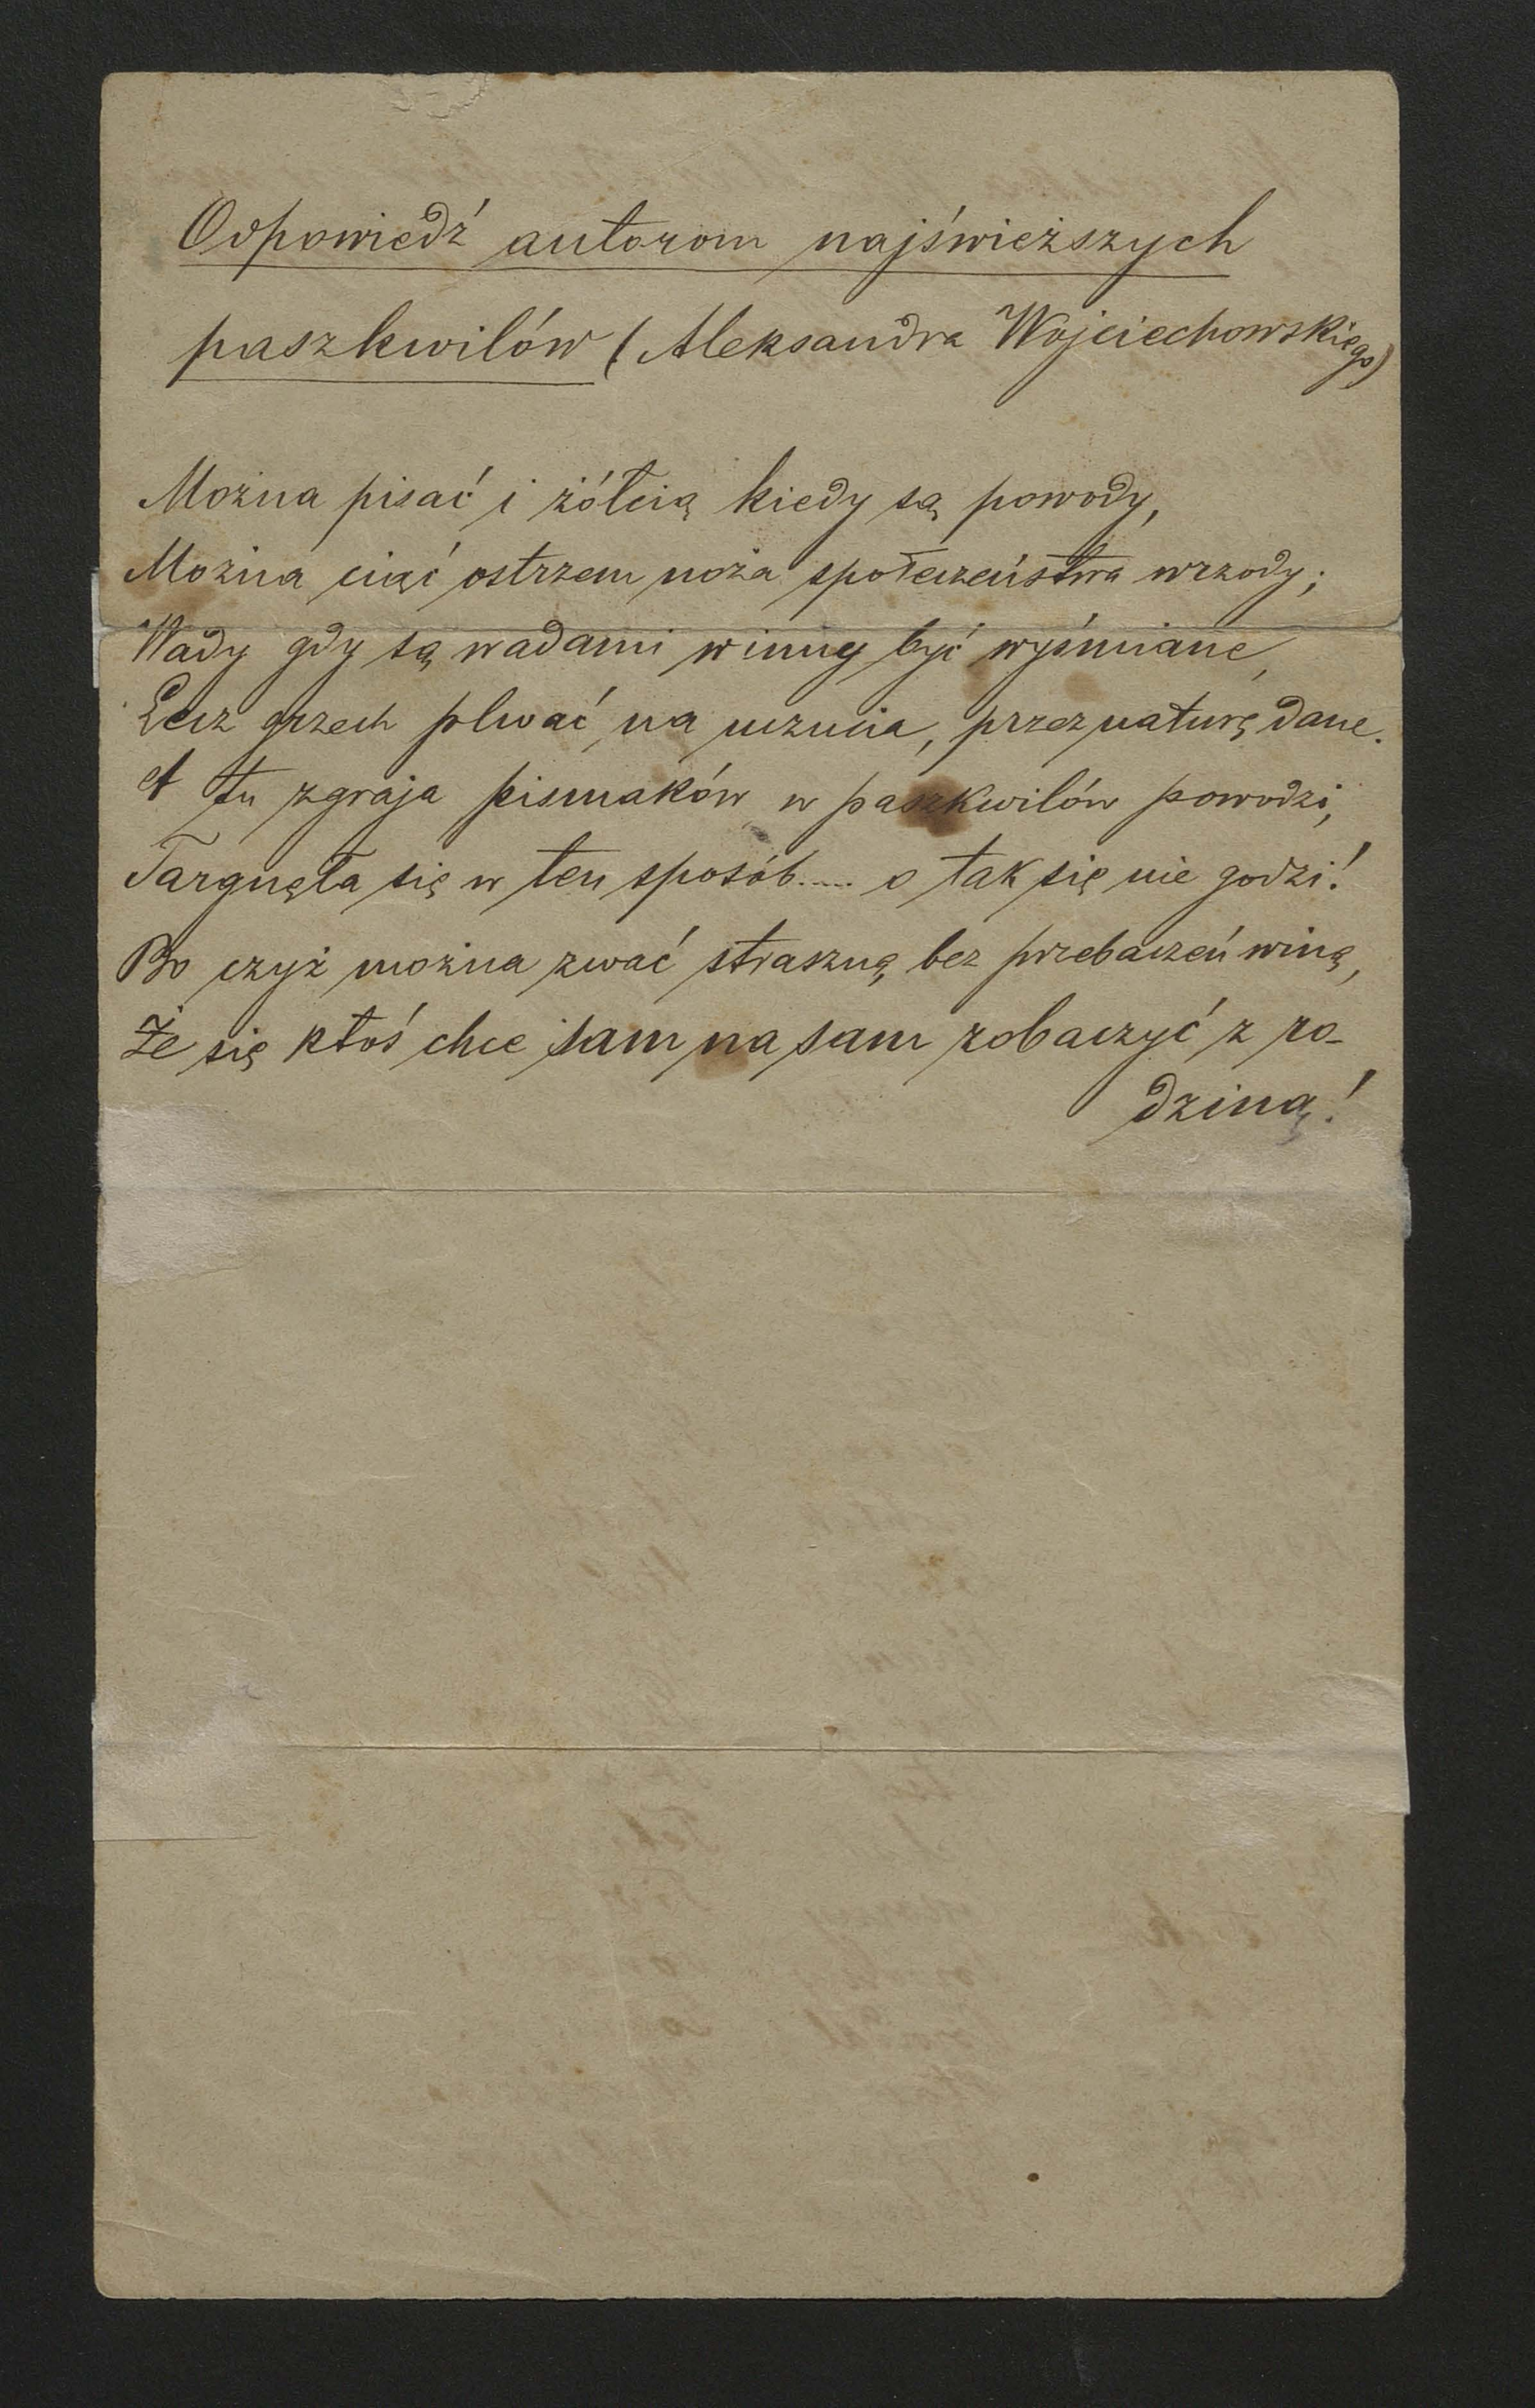 Odpowiedź autorom najświeższych
paszkwilów (Aleksandra Wojciechowskiego)
Można pisać i żółcią kiedy są powody,
Można ciąć ostrzem noża społeczeństwa wrzody;
Wady gdy są wadami winny być wyśmiane,
Lecz grzech plwać na uczucia, przez naturę dane.
A tu zgraja pismaków w paszkwilów powodzi,
Targnęła się w ten sposób..... o tak się nie godzi!
Bo czyż można zwać straszną, bez przebaczeń winą,
Że się ktoś chce sam na sam zobaczyć z ro-
dziną!